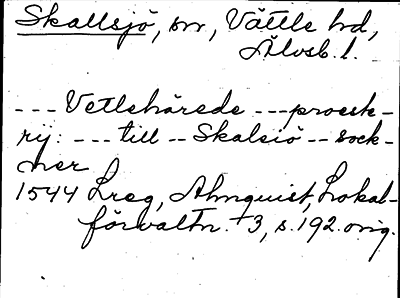 Skallsjö, sn, Vättle hd,
Älvsb. l.
--- Vetlehärede --- proeste-
rij: --- till -- Skalsiö -- sock-
ner
1544 Lreg, Almquist, Lokal-
förvaltn. +3, s. 192. orig.